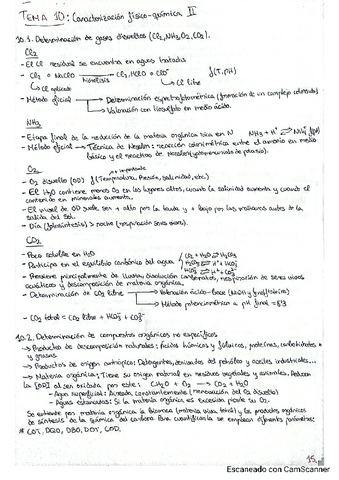 TEMA 10: Caracterización físico-química II
10.1. Determinación de gases disueltos (Cl₂, NH₃, O₂, CO₂).
Cl₂
- El Cl residual se encuentra en aguas tratadas
- Cl₂ o NaClO → Cl₂, HClO o ClO⁻ f(T, pH)
hidrólisis
↳ Cl aplicado ↳ Cl libre
- Método oficial → Determinación espectrofotométrica (formación de un complejo coloreado)
↳ Valoración con tiosulfato en medio ácido.
NH₃
- Etapa final de la reducción de la materia orgánica rica en N NH₃ + H⁺ ⇌ NH₄⁺ (pH)
- Método oficial → Técnica de Nessler: reacción colorimétrica entre el amonio en medio
básico y el reactivo de Nessler (yodomercuriato de potasio).
O₂
+ importante
- O₂ disuelto (OD) f(Temperatura, Presión, salinidad, etc.)
- El H₂O contiene menos O₂ en los lugares altos, cuando la salinidad aumenta y cuando el
contenido en minerales aumenta.
- El nivel de OD suele ser + alto por la tarde y + bajo por las mañanas antes de la
salida del Sol.
- Día (fotosíntesis) > noche (respiración seres vivos).
CO₂
- Poco soluble en H₂O
- Participa en el equilibrio carbónico del agua { CO₂ + H₂O ⇌ H₂CO₃
H₂CO₃ ⇌ H⁺ + HCO₃⁻
HCO₃⁻ ⇌ H⁺ + CO₃²⁻
- Proviene principalmente de lluvia, disolución carbonatos, respiración de seres vivos
acuáticos y descomposición de materia orgánica.
- Determinación de CO₂ libre → Valoración ácido-base (NaOH y fenolftaleína)
↳ Método potenciométrico a pH final = 8'3
- CO₂ total = CO₂ libre + HCO₃⁻ + CO₃²⁻
10.2. Determinación de compuestos orgánicos no específicos
→ Productos de descomposición naturales: ácidos húmicos y fúlvicos, proteínas, carbohidratos
y grasas
→ Productos de origen antrópico: Detergentes, derivados del petróleo y aceites industriales...
→ Materia orgánica: Tiene su origen natural en residuos vegetales y animales. Reducen
la [OD] al ser oxidada por este: CH₂O + O₂ → CO₂ + H₂O
- Agua superficial: Aireada constantemente (renovación del O₂ disuelto)
- Aguas estancadas: Si la materia orgánica es excesiva pierde su O₂.
Se entiende por materia orgánica la biomasa (materia viva total) y los productos orgánicos
de síntesis de la química del carbono. Para cuantificarla se emplean diferentes parámetros:
* COT, DQO, DBO, DOT, COD.
15
Escaneado con CamScanner